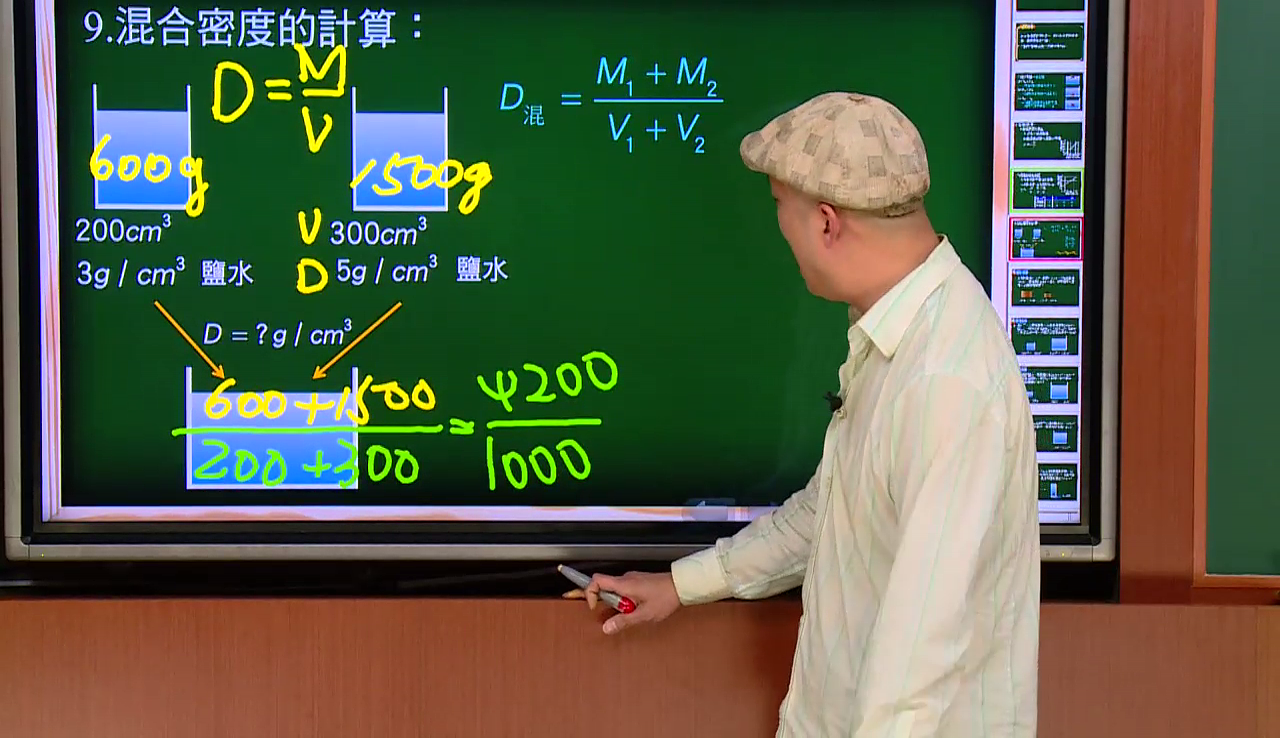 9.混合密度的計算：
D = M / V
D混 = (M₁ + M₂) / (V₁ + V₂)
600g
1500g
200cm³
V 300cm³
3g / cm³ 鹽水
D 5g / cm³ 鹽水
D = ? g / cm³
(600 + 1500) / (200 + 300) = 4200 / 1000